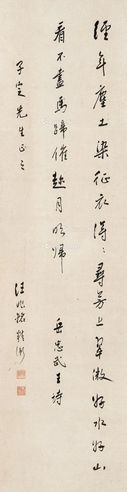 經年塵土染征衣得〻尋芳上翠微好水好山
看不盡馬蹄催趁月明歸
岳忠武王詩
子定先生正之
汪兆銘